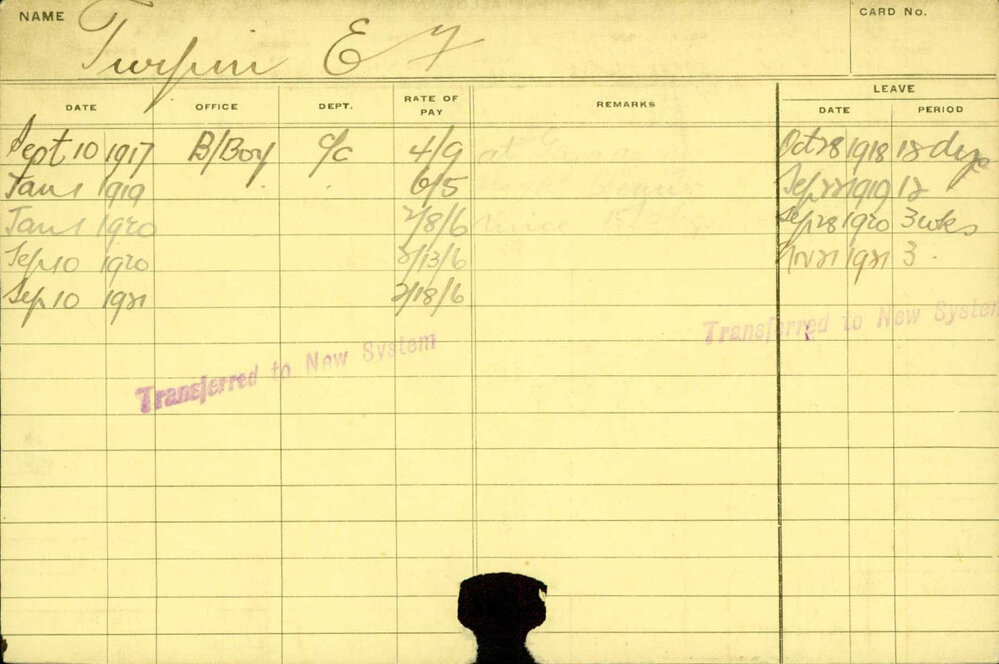 NAME Turpin E F CARD No.
LEAVE
DATE OFFICE DEPT. RATE OF PAY REMARKS DATE PERIOD
Sept 10 1917 B/Boy O/C 4/9 Oct 28 1918 18 days
Jan 1 1919 " " 6/5 Sep 22 1919 18
Jan 1 1920 2/8/6 Sep 28 1920 3 wks
Sep 10 1920 2/13/6 Nov 21 1921 3 "
Sep 10 1921 2/18/6
Transferred to New System
Transferred to New System